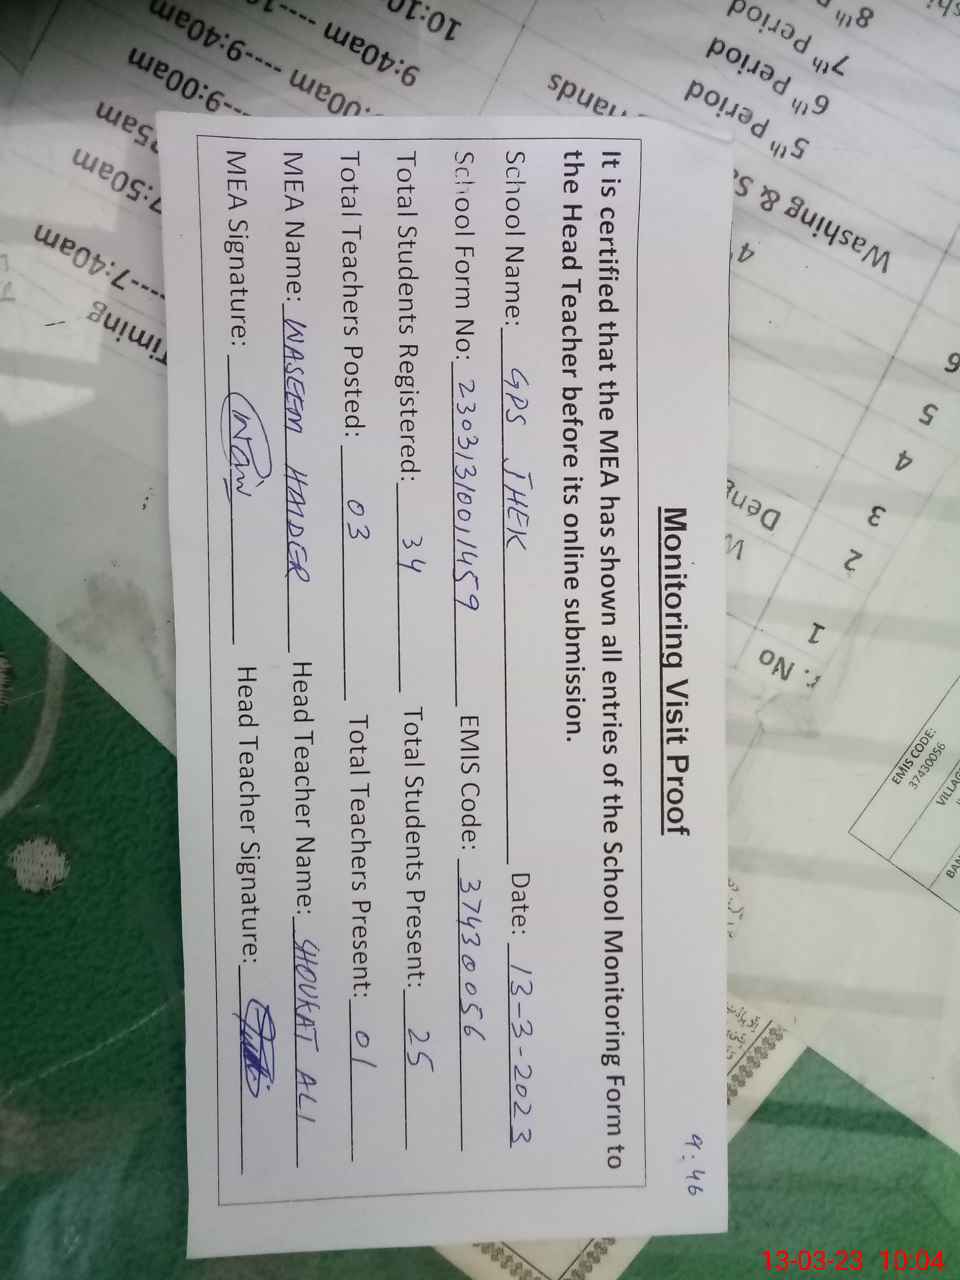 9:46
Monitoring Visit Proof
It is certified that the MEA has shown all entries of the School Monitoring Form to
the Head Teacher before its online submission.
School Name: GPS JHEK Date: 13-3-2023
School Form No: 23031310011459 EMIS Code: 37430056
Total Students Registered: 34 Total Students Present: 25
Total Teachers Posted: 03 Total Teachers Present: 01
MEA Name: WASEEM HAIDER Head Teacher Name: SHOUKAT ALI
MEA Signature: Head Teacher Signature:
Timing
----7:40am
7:50am
5am
---9:00am
----9:40am
9:40am
10:10
8th
7th Period
6th Period
5th Period
Washing &
4
6
5
4
3
2
1
No
EMIS CODE:
37430056
13-03-23 10:04